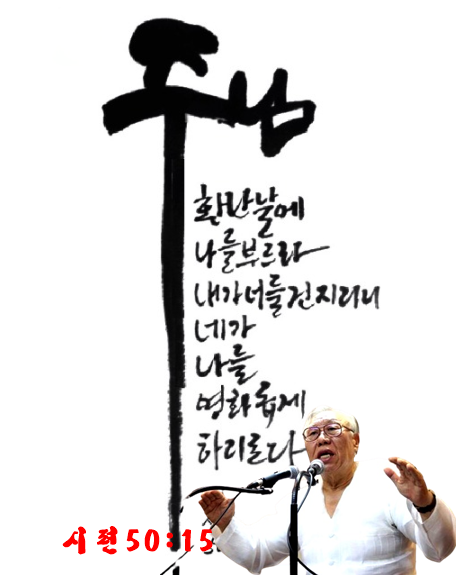 주님
환난날에
나를부르라
내가너를건지리니
네가
나를
영화롭게
하리로다
시편50:15